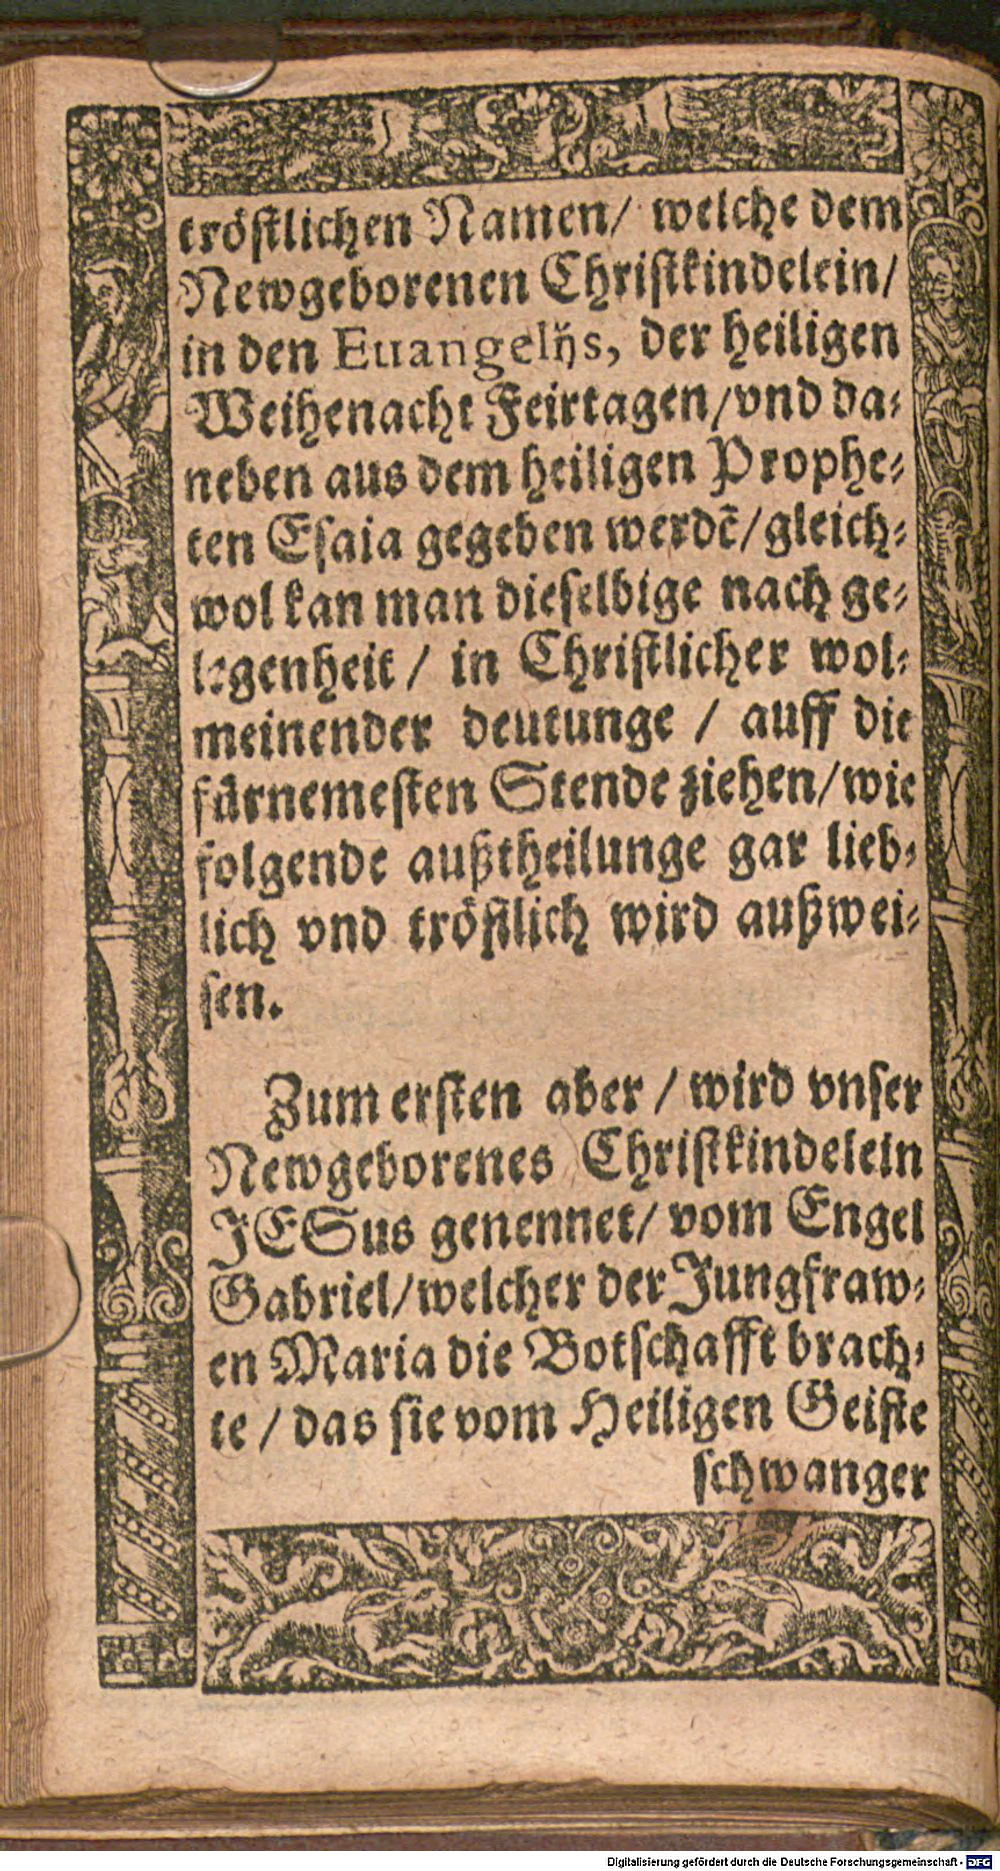 tröstlichen Namen/ welche dem
Newgeborenen Christkindelein/
in den Euangelijs, der heiligen
Weihenacht Feirtagen/vnd da-
neben aus dem heiligen Prophe-
ten Esaia gegeben werdē/gleich-
wol kan man dieselbige nach ge-
legenheit / in Christlicher wol-
meinender deutunge / auff die
fürnemesten Stende ziehen/wie
folgende außtheilunge gar lieb-
lich vnd tröstlich wird außwei-
sen.
Zum ersten aber / wird vnser
Newgeborenes Christkindelein
JESus genennet/ vom Engel
Gabriel/welcher der Jungfraw-
en Maria die Botschafft brach-
te / das sie vom Heiligen Geiste
schwanger
Digitalisierung gefördert durch die Deutsche Forschungsgemeinschaft - DFG